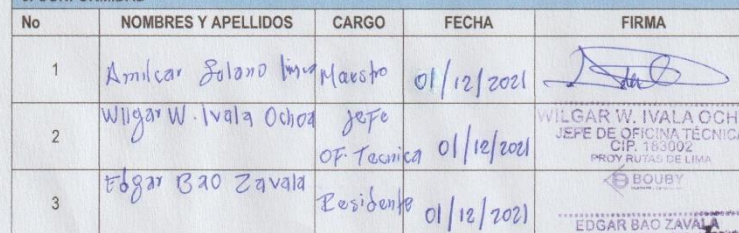 No NOMBRES Y APELLIDOS CARGO FECHA FIRMA
1 Amilcar Solano Maestro 01/12/2021
2 Wilgar W. Ivala Ochoa Jefe
OF. Tecnica 01/12/2021
WILGAR W. IVALA OCH
JEFE DE OFICINA TÉCNICA
CIP. 183002
PROY RUTAS DE LIMA
3 Edgar Bao Zavala Residente 01/12/2021
BOUBY
EDGAR BAO ZAVALA